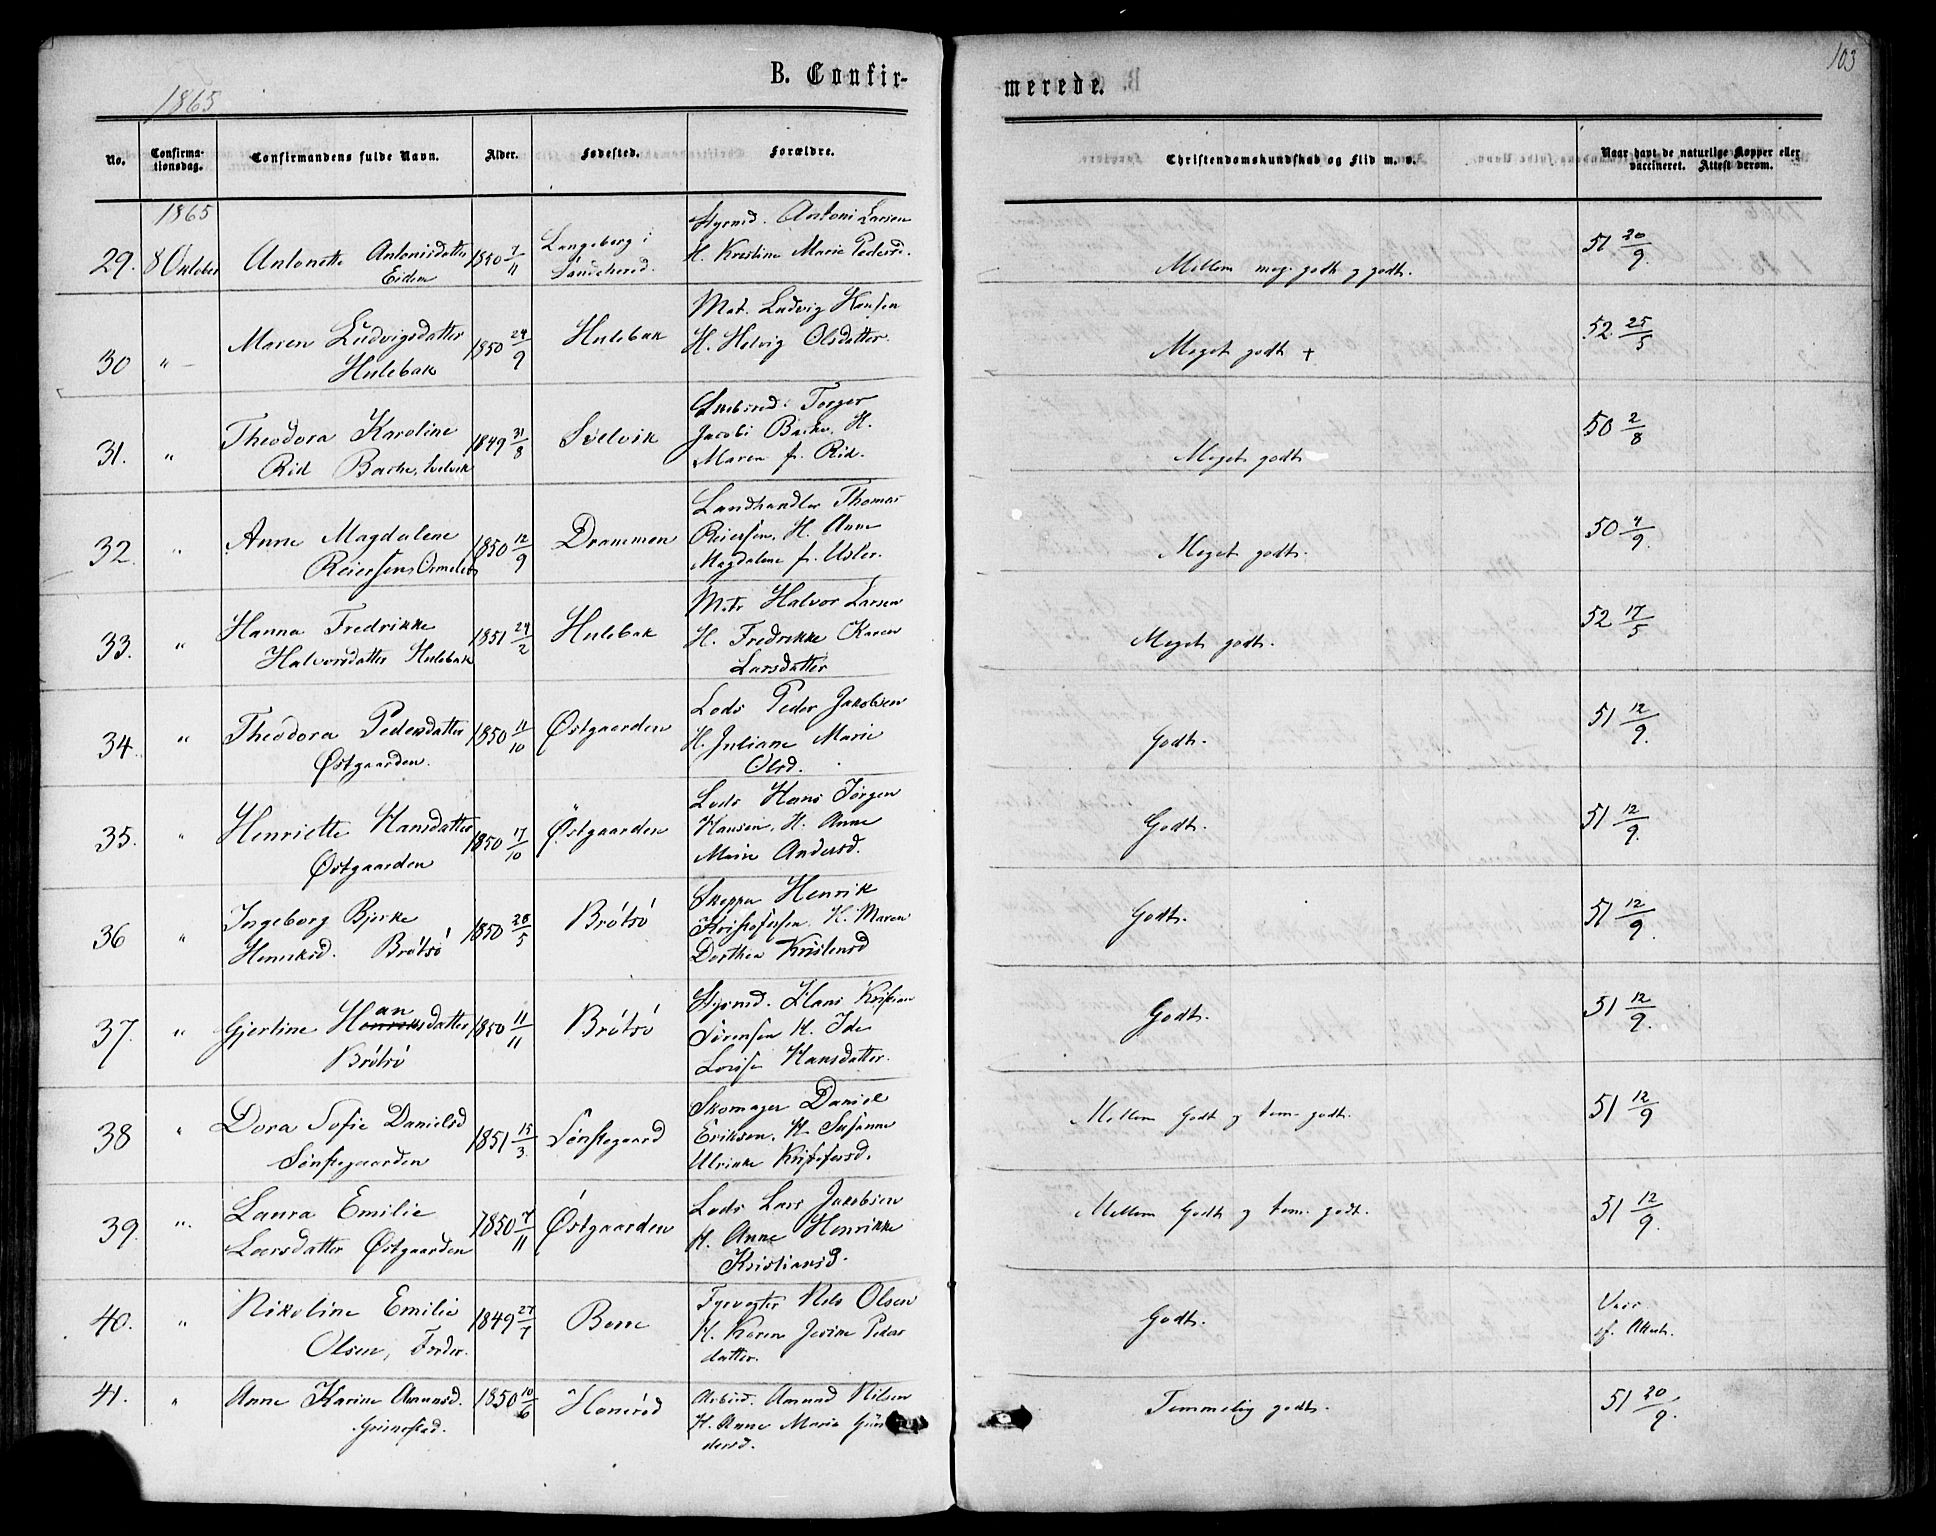 103
1865
B. Confir-
merede.
No.
Confirma-
tionsdag.
Confirmandens fulde Navn.
Alder.
Fødested.
Forældre.
Christendomskundskab og Flid m. v.
Naar havt de naturlige Kopper eller
vaccineret. Attest derom.
1865
29. 8 Oktober Antonette Antonisdatter 1850 7/11 Langeberg i Styrmd. Antoni Larsen
Eiden Sandeherred. H. Kristine Marie Pedersd.
Mellem meg. godt og godt. 51 20/9.
30 " — Maren Ludvigsdatter 1850 24/9 Hulebak Mat. Ludvig Hansen
Hulebak H. Helvig Olsdatter.
Meget godt + 52 25/5
31. " Theodora Karoline 1849 31/8 Svelvik Torger
Rid Bache, Svelvik Jacobi Bache, H.
Maren f. Rid.
Meget godt 50 2/8
32. " Anne Magdalene 1850 12/9 Drammen Landhandler Thomas
Reiersen, Reiersen, H. Anne
Magdalene f.
Meget godt. 50 4/9.
33. " Hanna Fredrikke 1851 24/2 Hulebak Matr Halvor Larsen
Halvorsdatter Hulebak H. Fredrikke Karen
Larsdatter
Meget godt. 52 17/5
34. " Theodora Pedersdatter 1850 11/10 Østgaarden Lods Peder Jakobsen
Østgaarden. H. Juliane Marie
Olsd.
Godt. 51 12/9.
35. " Henriette Hansdatter 1850 17/10 Østgaarden Lods Hans Jørgen
Østgaarden Hansen, H. Anne
Marie Andersd.
Godt. 51 12/9.
36 " Ingeborg Bjerke 1850 28/5 Brøtsø Skipper Henrik
Henriksd. Brøtsø Kristofersen. H. Maren
Dorthea Kristensd
Godt. 51 12/9.
37. " Gjertine Hansdatter 1850 11/11 Brøtsø Styrmd. Hans Kristian
Brøtsø Sørensen H. Ide
Lovise Hansdatter.
Godt. 51 12/9.
38 " Dora Sofie Danielsd 1851 15/3. Sønstegaard Skomager Daniel
Sønstegaarden Eriksen, H. Susanne
Ulrikke Kristofersd.
Mellem Godt og tem. godt. 51 12/9
39. " Laura Emilie 1850 7/11 Østgaarden Lods Lars Jakobsen
Larsdatter Østgaarden H. Anne Henrikke
Kristiansd.
Mellem Godt og tem. godt. 51 12/9.
40. " Nikoline Emilie 1849 27/7 Borre Fyrvogter Nils Olsen
Olsen, H. Karen Jevine Peder
datter.
Godt. Vacc
ef. Attest.
41. " Anne Karine Amunsd. 1850 10/6 Hanerød Arbeid. Amund Nilsen
Grimestad. H. Anne Maria Gun
dersd.
Temmelig godt. 51 20/9.